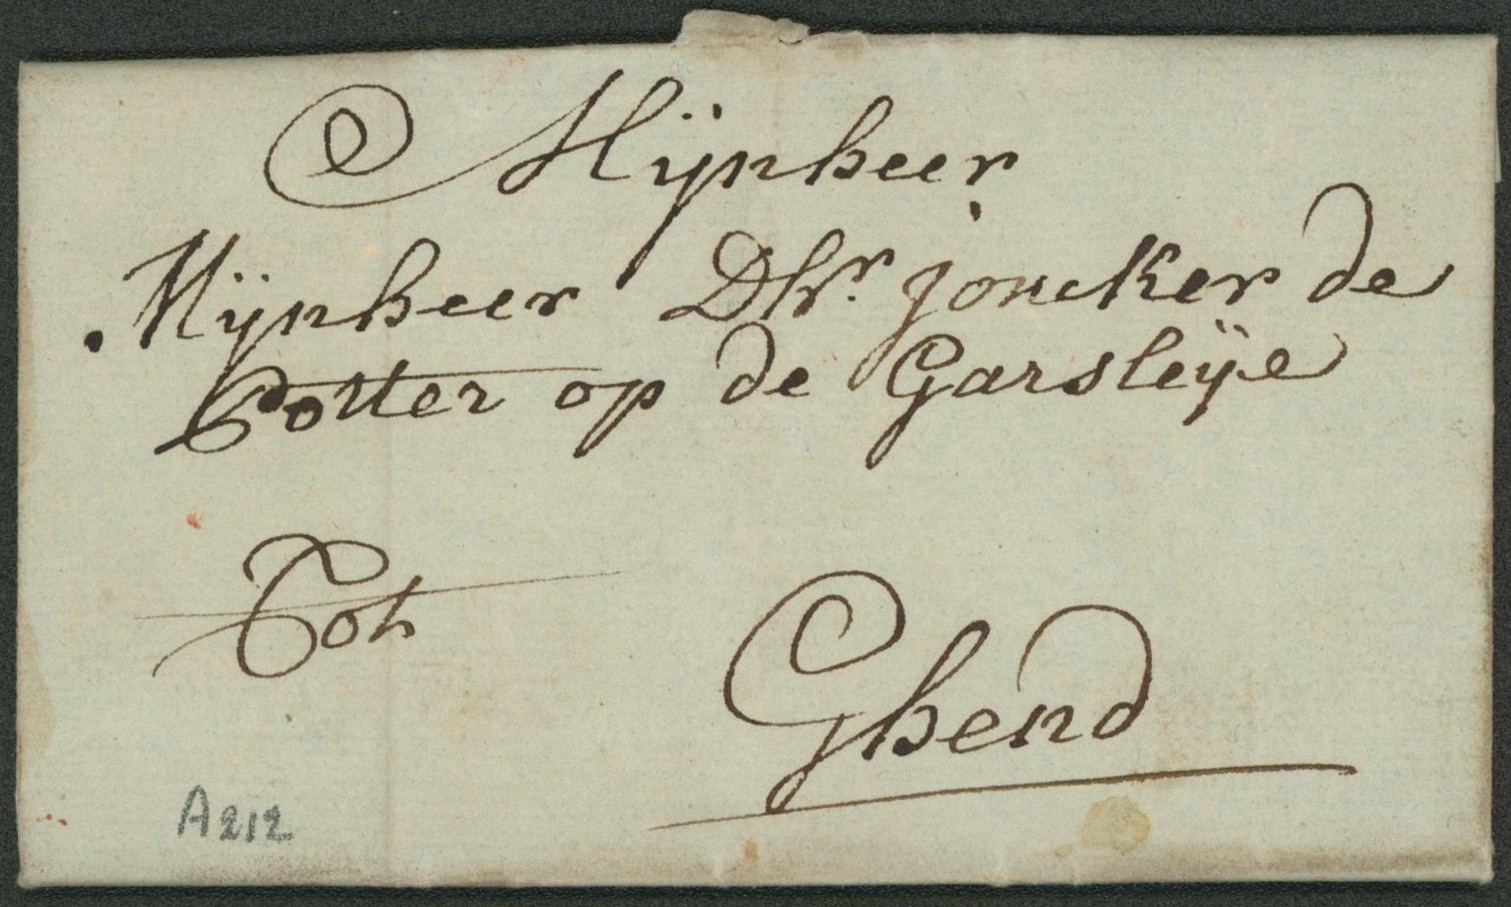 Mijnheer
Mijnheer Dhr. joncker de
Potter op de Garsleÿe
Tot
Ghend
A212